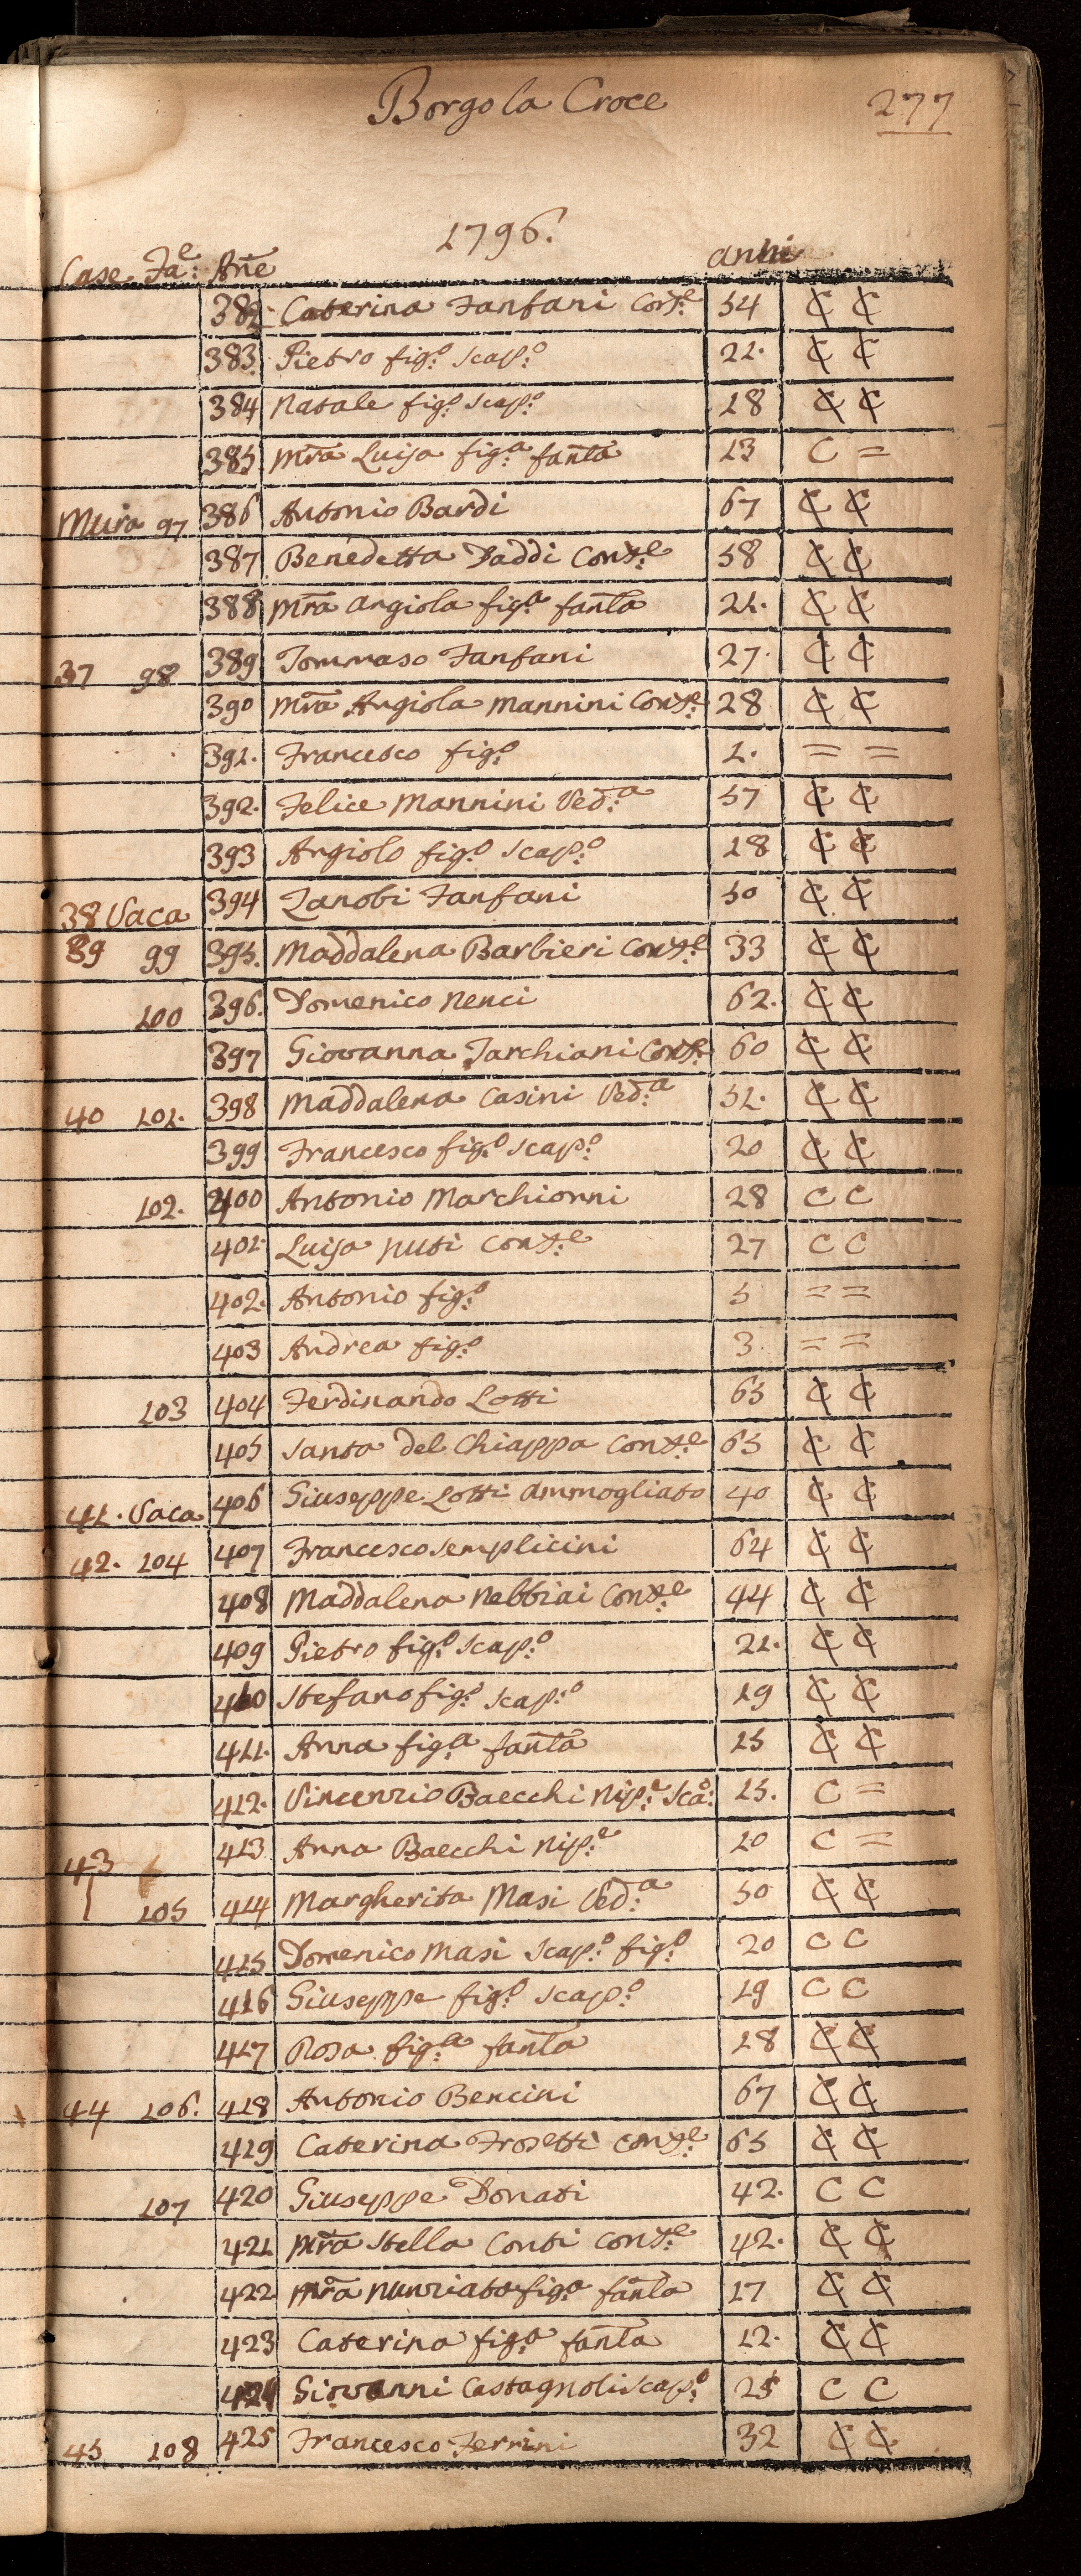 Borgo la Croce 277
1796.
Case. Fa:e Ane anni
382. Caterina Fanfani Cons:e 54 C C
383. Pietro fig:o scap:o 21. C C
384 Natale fig:o scap:o 18 C C
385 Mra Luisa fig:a fanta 13 C =
Mura 97 386 Antonio Bardi 67 C C
387 Benedetta Daddi Cons:e 58 C C
388 Mra Angiola fig:a fanta 21. C C
37 98 389 Tommaso Fanfani 27. C C
390 Mra Angiola Mannini Cons:e 28 C C
391. Francesco fig:o 1. = =
392. Felice Mannini Ved:a 57 C C
393 Angiolo fig:o scap:o 18 C C
38 Vaca 394 Zanobi Fanfani 50 C C
39 99 395. Maddalena Barbieri Cons:e 33 C C
100 396. Domenico Nenci 62. C C
397 Giovanna Tarchiani Cons:e 60 C C
40 101. 398 Maddalena Casini Ved:a 51. C C
399 Francesco fig:o scap:o 20 C C
102. 400 Antonio Marchionni 28 C C
401. Luisa Nuti Cons:e 27 C C
402. Antonio fig:o 5 = =
403 Andrea fig:o 3. = =
103 404 Ferdinando Lotti 65 C C
405 Santa del Chiappa Cons:e 65 C C
41. Vaca 406 Giuseppe Lotti Ammogliato 40 C C
42. 104 407 Francesco Semplicini 64 C C
408 Maddalena Nebbiai Cons:e 44 C C
409 Pietro fig:o scap:o 21. C C
410 Stefano fig:o scap:o 19 C C
411. Anna fig:a fanta 15 C C
412. Vincenzio Baecchi Nip:e Sca:o 15. C =
43 413 Anna Baecchi Nip:e 10 C =
105 414 Margherita Masi Ved:a 50 C C
415 Domenico Masi scap:o fig:o 20 C C
416 Giuseppe fig:o scap:o 19 C C
417 Rosa fig:a fanta 18 C C
44 106. 418 Antonio Bencini 67 C C
419 Caterina Frosetti Cons:e 65 C C
107 420 Giuseppe Donati 42. C C
421 Mra Stella Conti Cons:e 42. C C
422 Mra Nunziata fig:a fanta 17 C C
423 Caterina fig:a fanta 12. C C
424 Giovanni Castagnoli scap:o 25 C C
45 108 425 Francesco Ferrini 32 C C